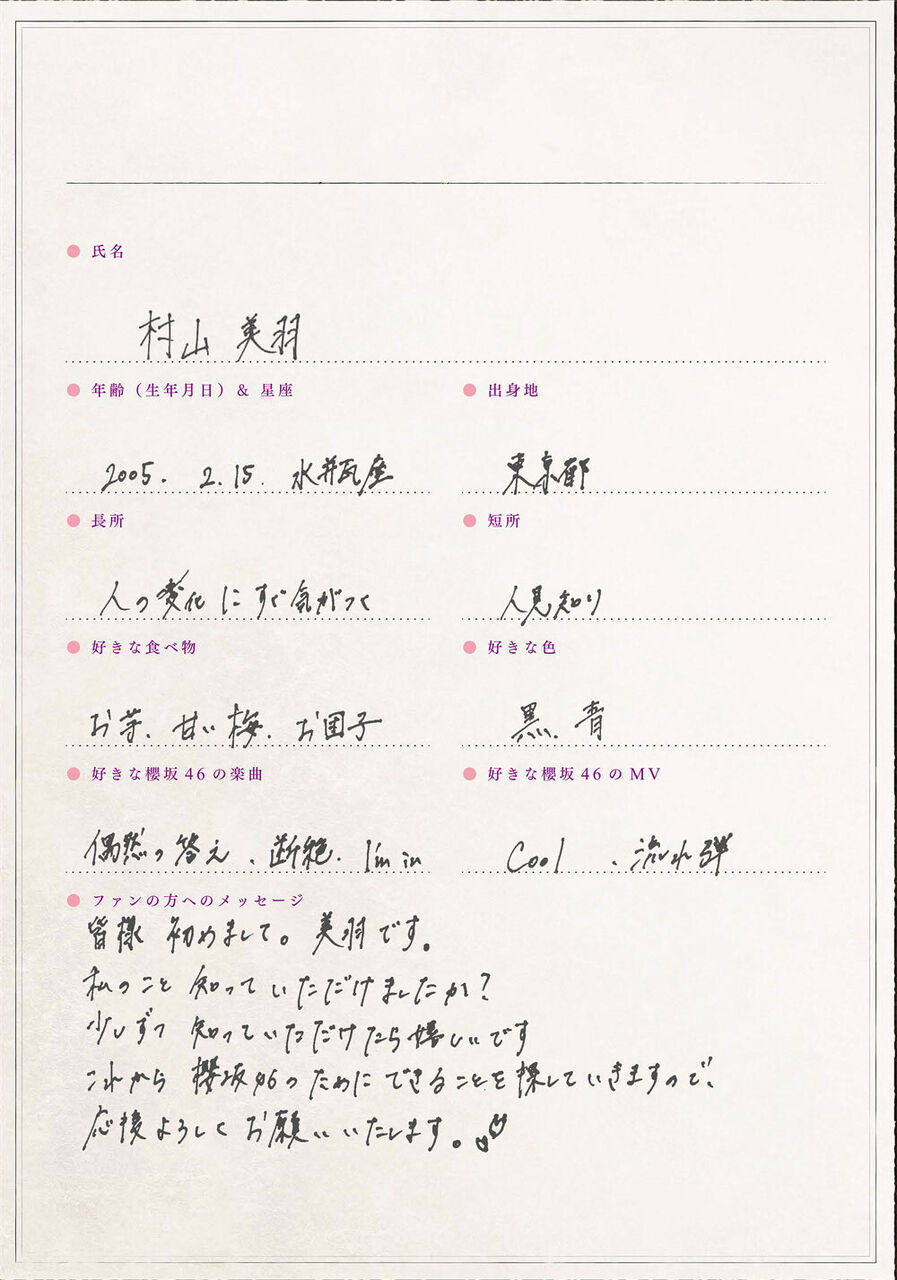 氏名
村山 美羽
年齢（生年月日）& 星座
出身地
2005. 2.15. 水瓶座
東京都
長所
短所
人の変化にすぐ気がつく
人見知り
好きな食べ物
好きな色
お芋、甘い梅、お団子
黒、青
好きな櫻坂46の楽曲
好きな櫻坂46のMV
偶然の答え、断絶、I'm in
Cool 、流れ弾
ファンの方へのメッセージ
皆様 初めまして。美羽です。
私のこと 知っていただけましたか?
少しずつ 知っていただけたら嬉しいです
これから 櫻坂46のために できることを探していきますので、
応援よろしくお願いいたします。